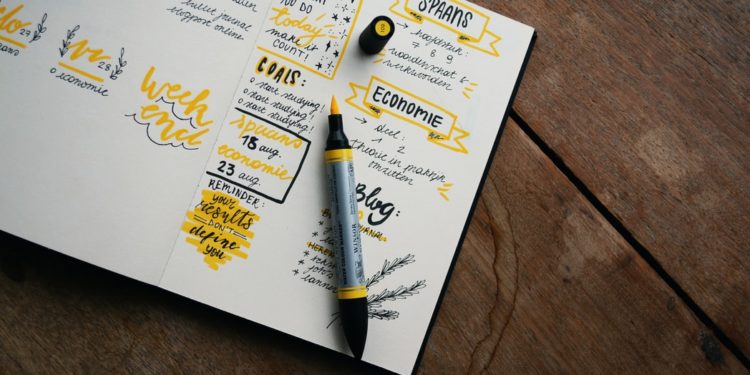 bullet journal
blogpost online
28
economie
week
end
YOU DO
today
make it
COUNT!
GOALS:
o start studying!
o start studying!
o start studying!
spaans
18 aug.
economie
23 aug.
REMINDER:
your
results
DON'T
define
you
SPAANS
→ hoofdstuk:
7 8 9
woordenschat &
werkwoorden
ECONOMIE
→ deel:
1 2
theorie in praktijk
omzetten
Blog:
WINSOR